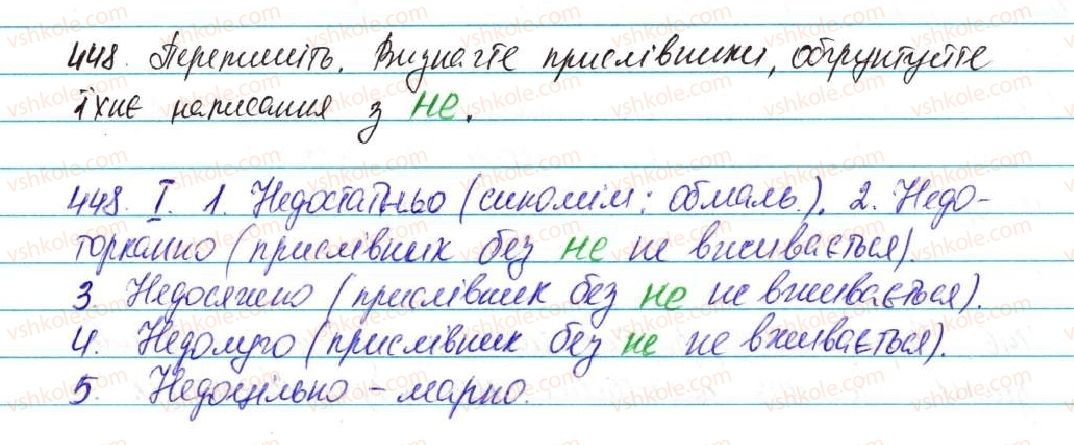 448. Перепишіть. Визначте прислівники, обґрунтуйте
їхнє написання з не.
448. I. 1. Недостатньо (синонім: обмаль). 2. Недо-
торканно (прислівник без не не вживається).
3. Недосяжно (прислівник без не не вживається).
4. Недолуго (прислівник без не не вживається).
5. Недоцільно - марно.